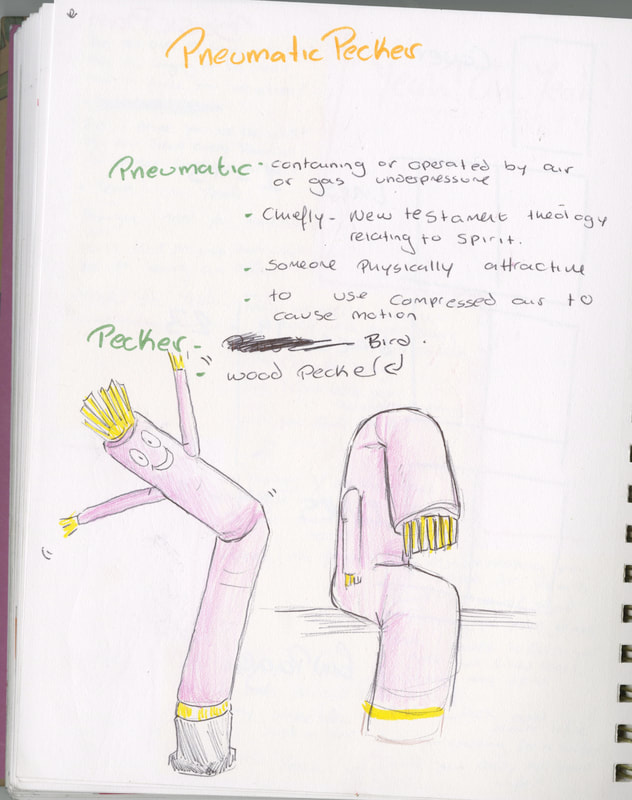 Pneumatic Pecker
Pneumatic - containing or operated by air
or gas underpressure
- Chiefly - New testament theology
relating to spirit.
- someone physically attractive
- to use compressed air to
cause motion
Pecker - Bird.
- wood Pecker